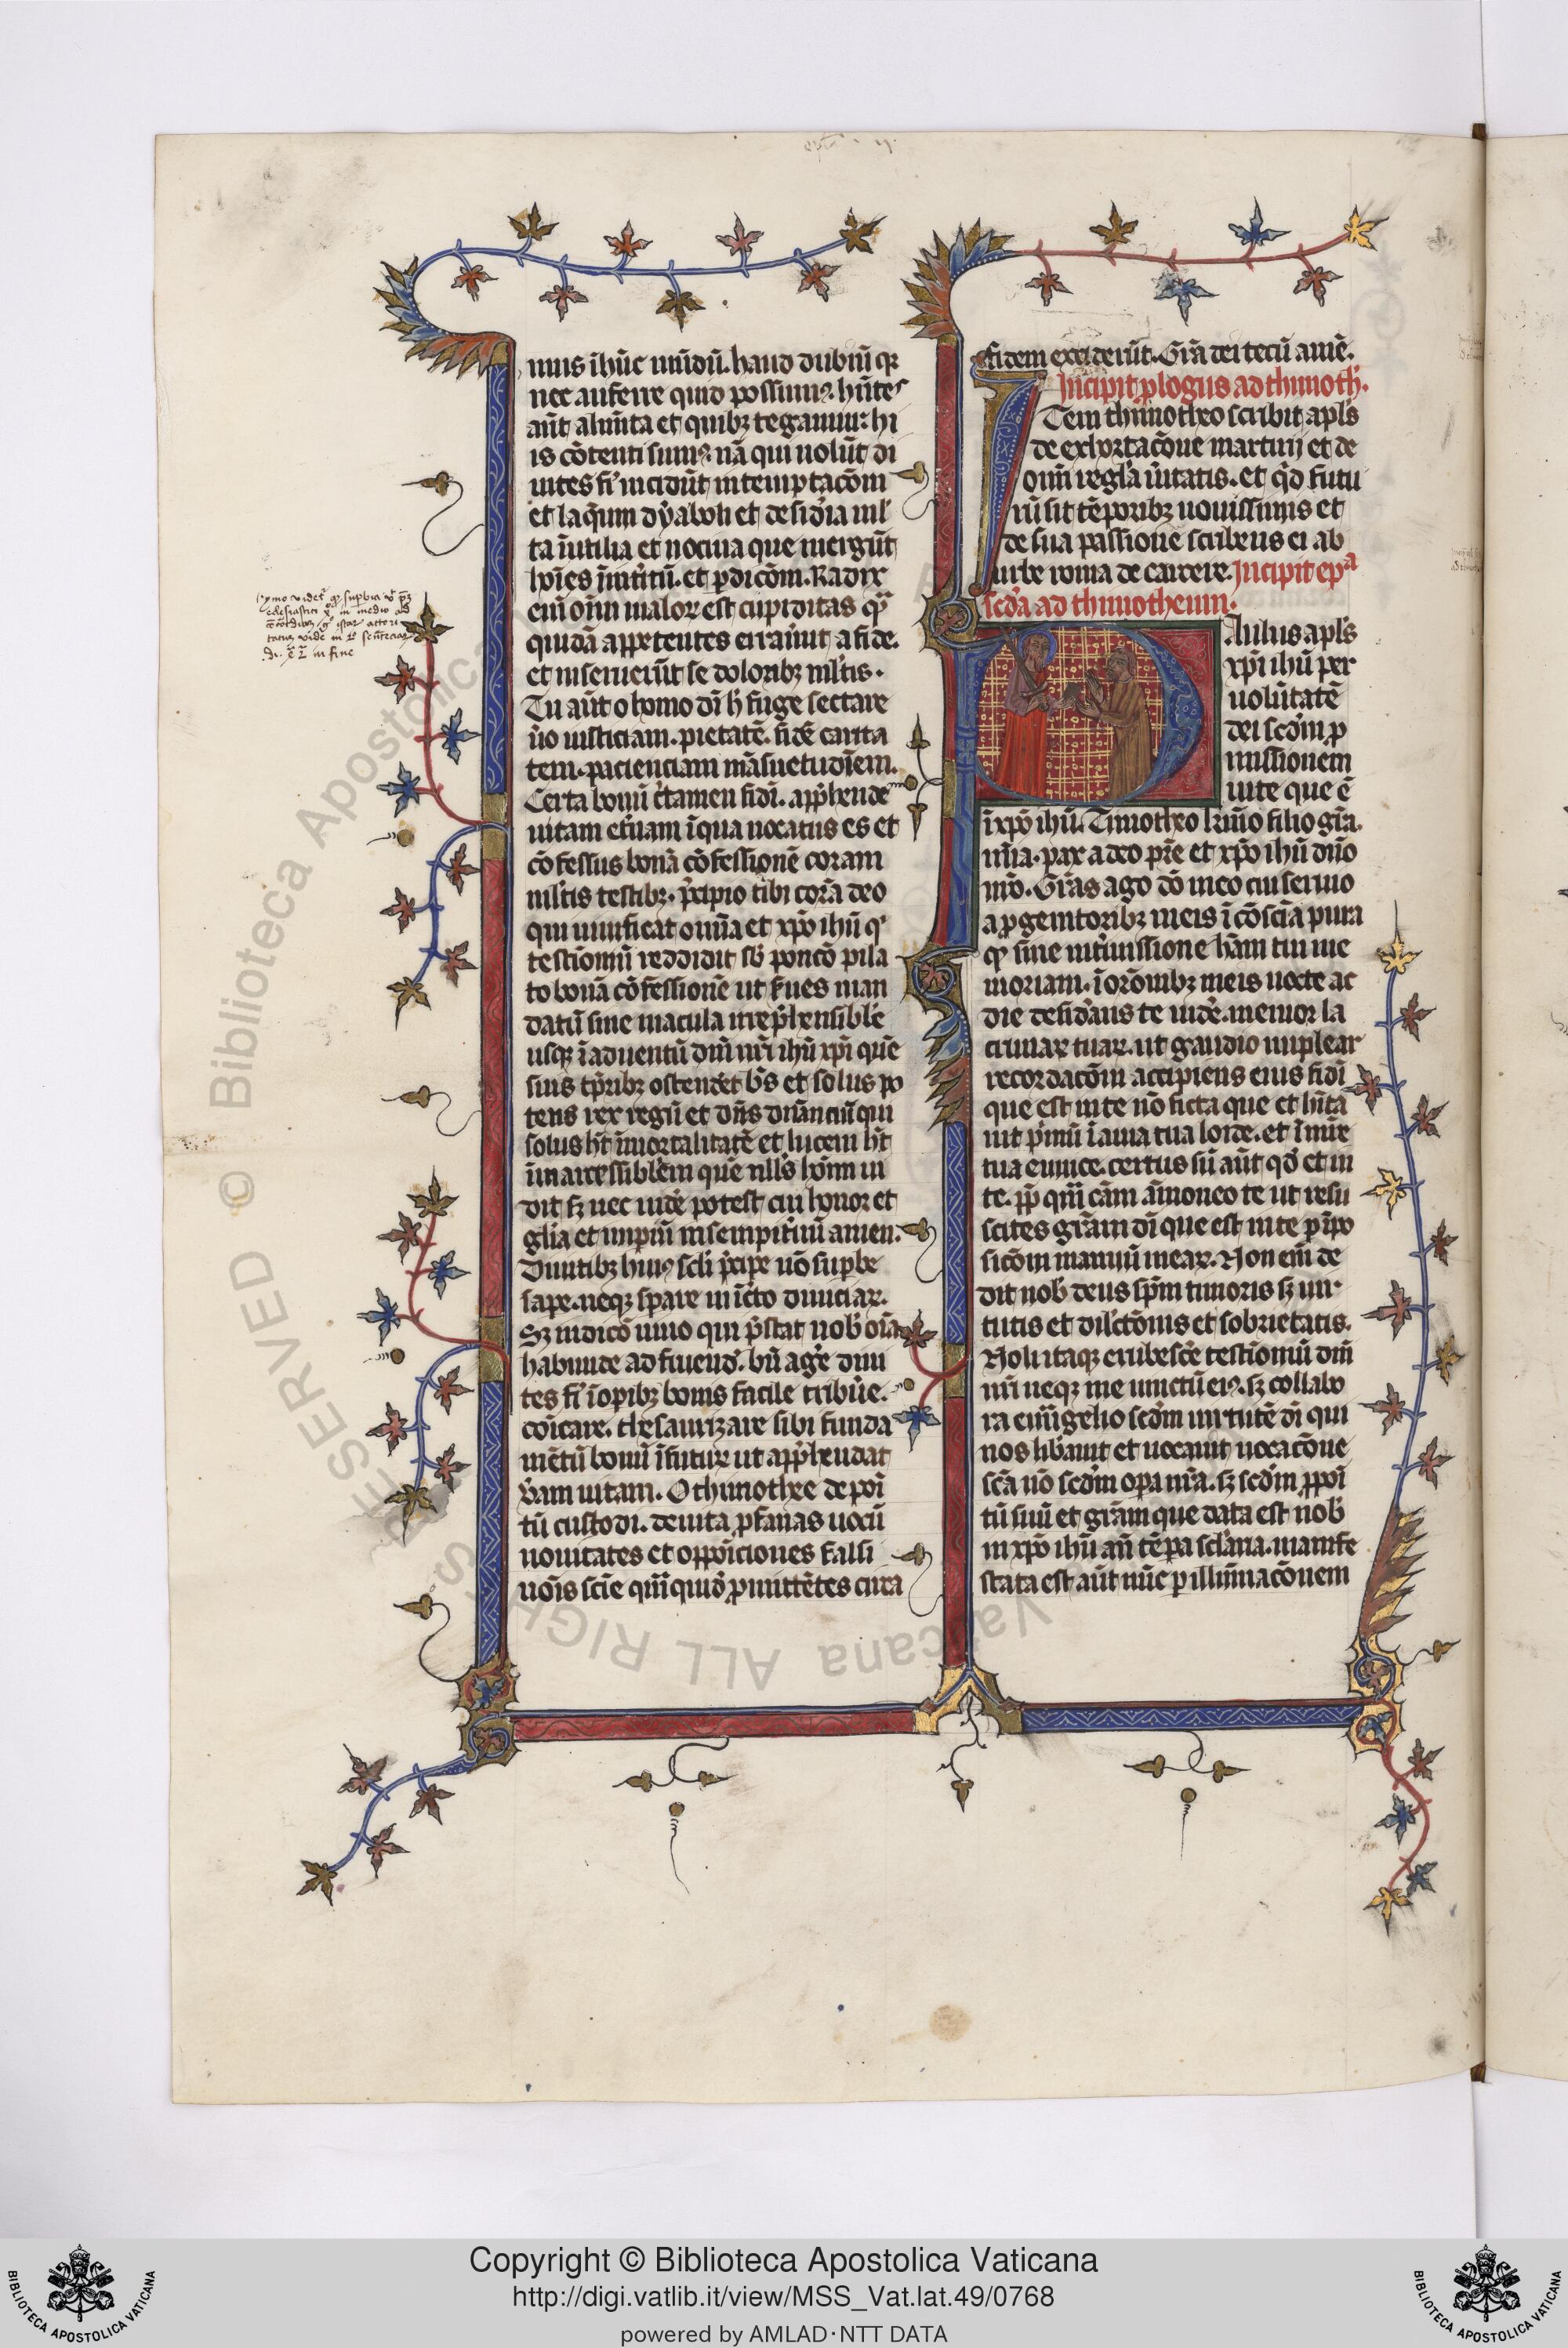 mus ī hūc mūdū. haud dubiū qr
nec auferre quid possumꝰ. hūtes
aūt alimēta et quibꝫ tegamur: hi
is cōtenti sumꝰ. nā qui uolūt di
uites fi' incidūt in temptacōm
et laqum dyaboli et desidia ml'
ta īutilia et nociua que mergūt
hoīes īnitītū. et ꝑdicōm. Radix
enī oīm maloꝝ est cupiditas q̄
quidā appetentes errauūt a fide.
et inseruerūt se doloribꝫ mltis.
Tu aūt o homo dī h' fuge sectare
ūo iusticiam. pietatē. fidē carita
tem. pacienciam māsuetudīem.
Certa bonū ctamen fidī. app̄hende
uitam et'nam ī qua uocatus es et
cōfessus bonā cōfessionē coram
mltis testibꝫ. p̄cipio tibi corā deo
qui uiuificat omīa et xp̄o ihū qͥ
testiomū reddidit sb' poncō pila
to bonā cōfessionē ut s'ues man
datū sine macula irrep̄hensible
usqꝫ ī aduentū dm̄ nr̄i ihū xp̄i quē
suis tp̄ribꝫ ostendet b's et solus po
tens rex regū et dn̄s dn̄anciū qui
solus ht' īmortalitatē et lucem ht'
īnaccessiblem quē nlls hoīm ui
dit sꝫ nec uidē potest cui honor et
gl'ia et impiū in sempit'nū amen.
Diuitibꝫ huiꝰ scli p̄cipe nō supbe
sape. neqꝫ spare in īcto diuiciaꝝ.
Sꝫ in dicō uiuo qui p̄stat nob' oīa
habunde ad fruend'. bn̄ age diui
tes fi' ī opibꝫ bonis facile tribue.
cōicare. thesaurizare sibi funda
mētū bonū ī futuꝝ ut app̄hendat
ūam uitam. O thimothee depoī
tū custodi. deuita ꝓfanas uocū
nouitates et oppoīciones falsi
noīs scīe quī quid' ꝓmittētes circa
fidem exciderūt. Grā dei tecū amē.
Incipit ꝓlogus ad thimoth'.
Item thimotheo scribit apl's
de exhortacōne martirij et de
omī regl'a ūitatis. et qd' futu
rū sit tēporibꝫ nouissimis et
de sua passione scribens ei ab
urbe roma de carcere. Incipit epᵃ
scd'a ad thimotheum.
Paulus apl's
xp̄i ihū per
uolūtatē
dei scdm ꝓ
missionem
uite que ē
ī xp̄o ihū. Timotheo kmo filio grā.
mīa. pax a deo pr̄e et xp̄o ihū dn̄o
nr̄o. Grās ago dō meo cui seruio
a ꝓgenitoribꝫ meis ī cōscīa pura
qꝙ sine int'missione hām tui me
moriam. ī orōnibꝫ meis nocte ac
die desid'ans te uidē. memor la
crimaꝝ tuaꝝ. ut gaudio implear
recordacōm accipiens eius fidī
que est in te nō ficta que et hīta
uit p'mū ī auia tua loide. et ī mr̄e
tua eunice. certus sū aūt qd' et in
te. pp̄ quā cām āmoneo te ut resu
scites grām dī que est in te p īpo
sicōm manuū meaꝝ. Non enī de
dit nob' deus spm̄ timoris sꝫ uir
tutis et dilctōnis et sobrietatis.
Noli itaqꝫ erubescē testiomū dm̄
nr̄i neqꝫ me uinctū eiꝰ. sꝫ collabo
ra euūgelio scdm uirtutē dī qui
nos lib'auit et uocauit uocacōne
scā nō scdm opa nr̄a. sꝫ scdm ꝓpoī
tū suū et grām que data est nob'
in xp̄o ihū an̄ tēpa sclaria. manife
stata est aūt nūc p illumīacōnem
Copyright © Biblioteca Apostolica Vaticana
http://digi.vatlib.it/view/MSS_Vat.lat.49/0768
powered by AMLAD·NTT DATA
BIBLIOTECA APOSTOLICA VATICANA
BIBLIOTECA APOSTOLICA VATICANA
© Biblioteca Apostolica Vaticana ALL RIGHTS RESERVED